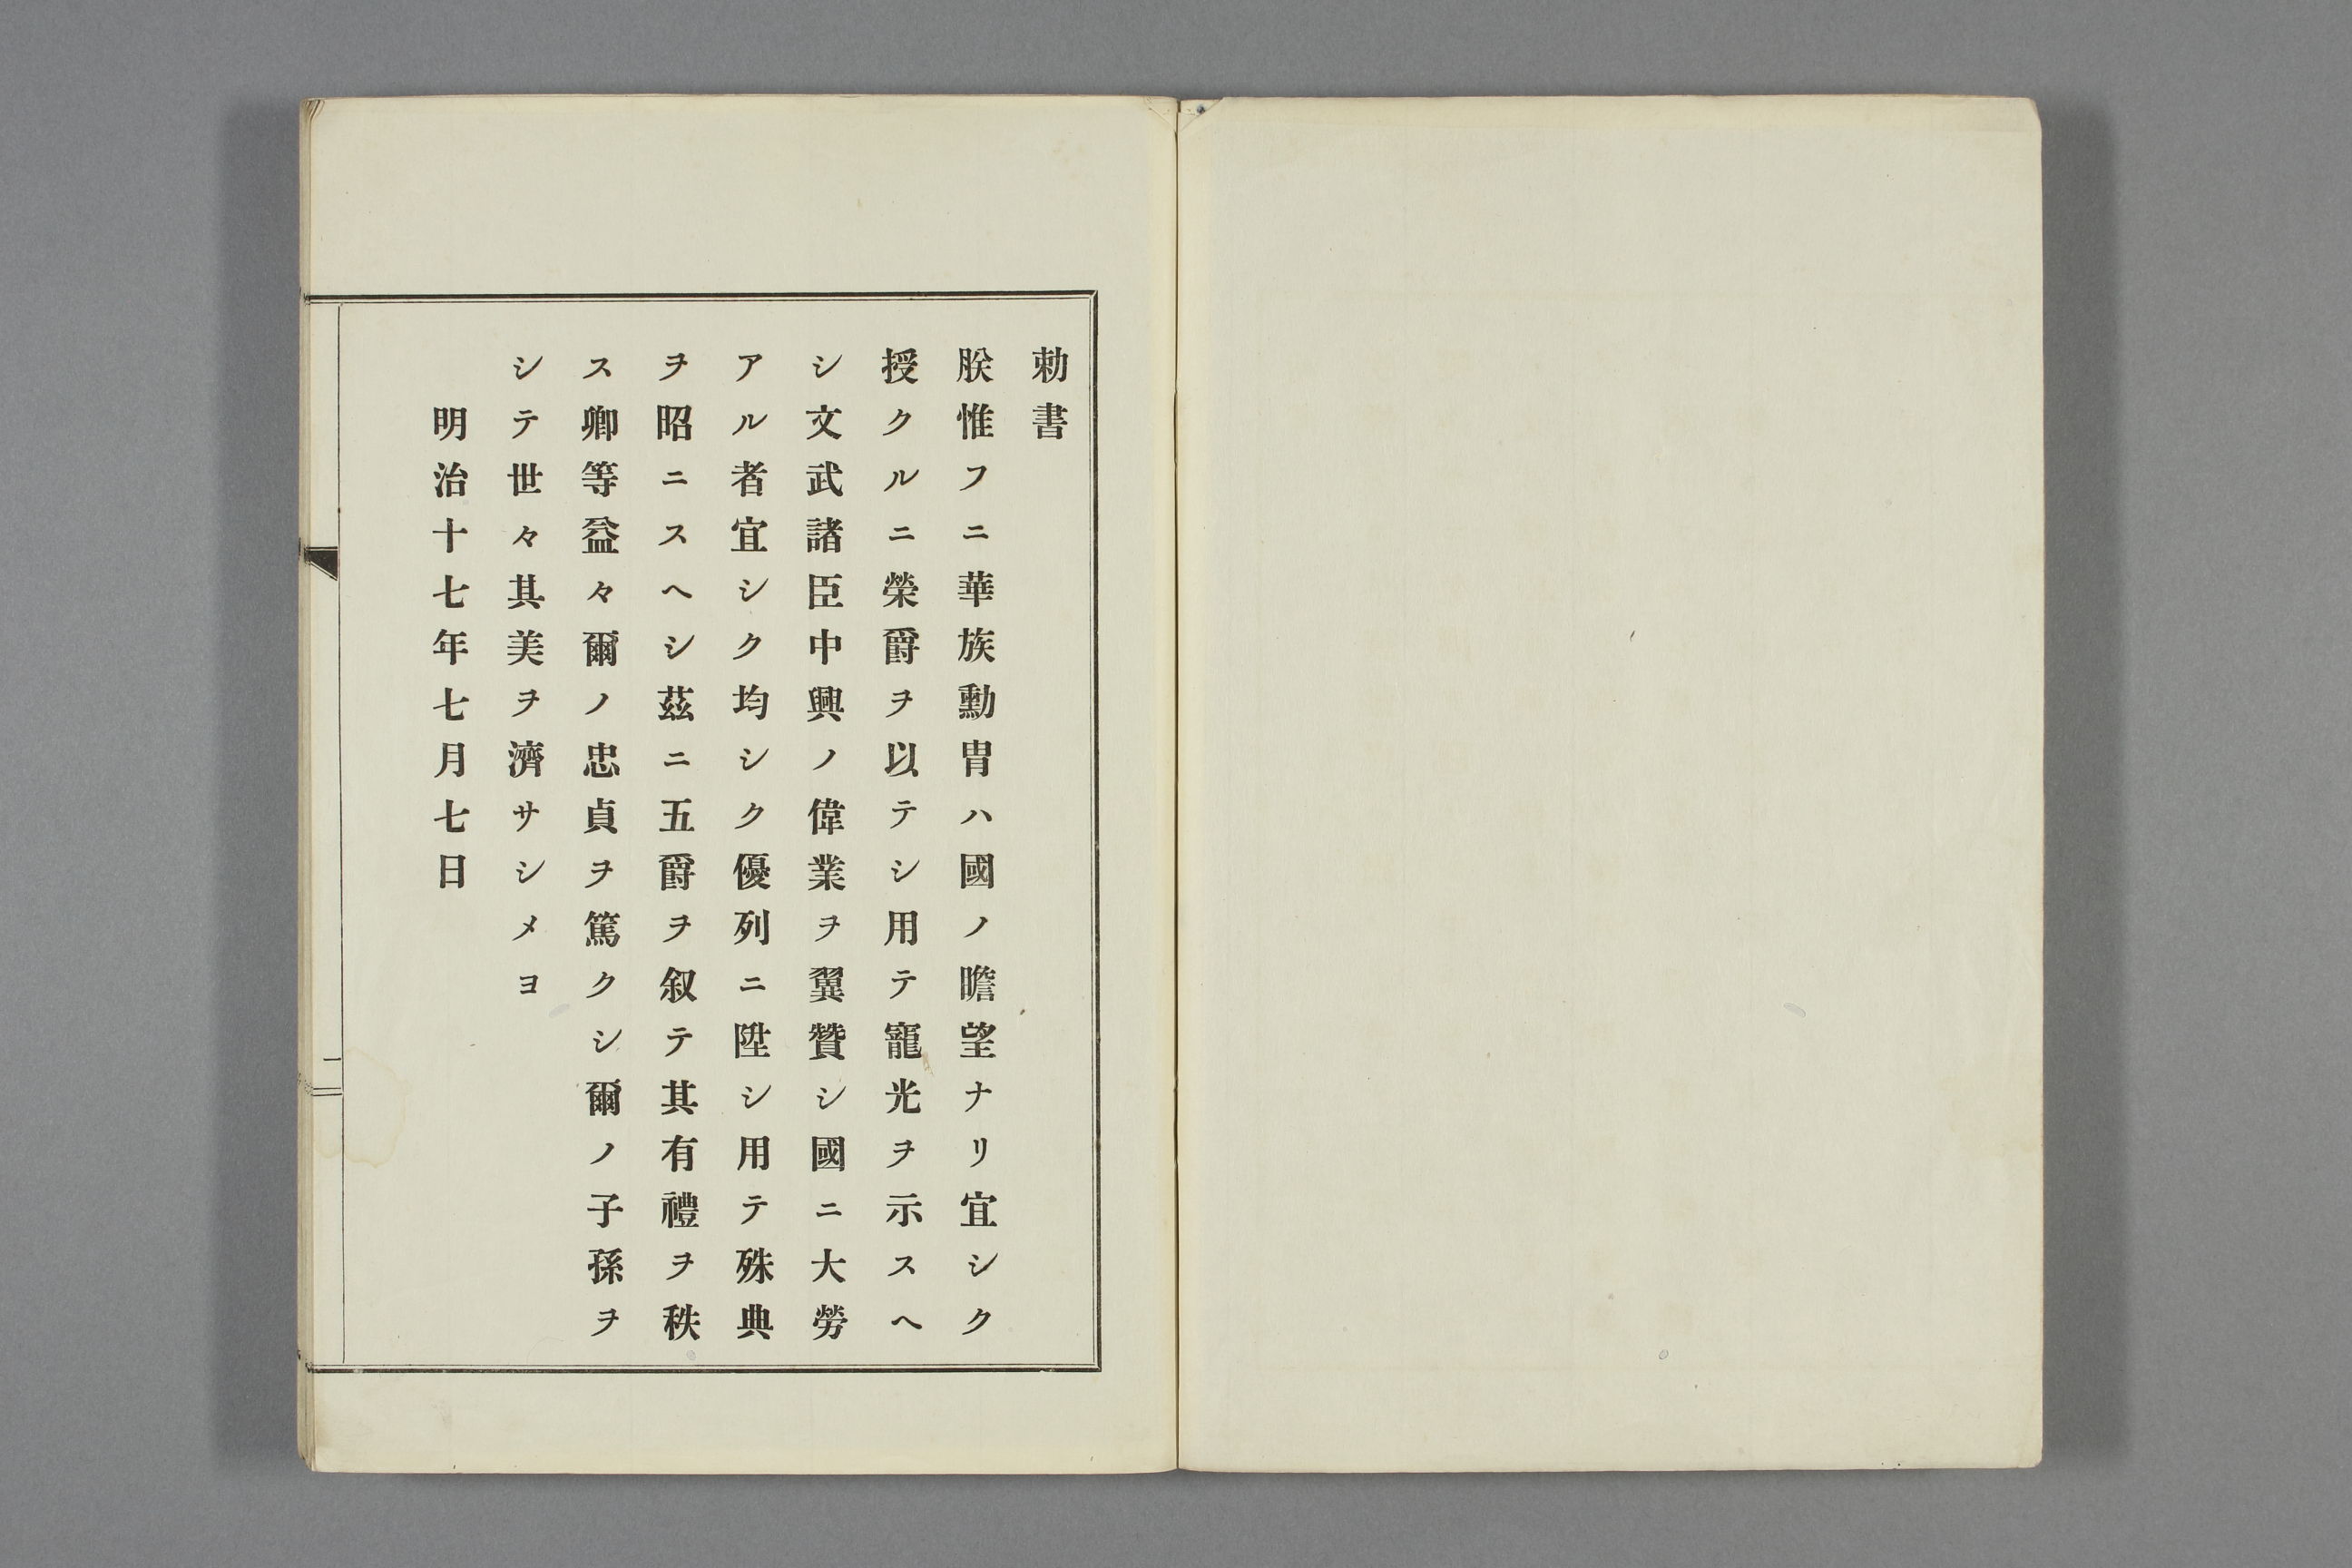 勅書
朕惟フニ華族勳冑ハ國ノ瞻望ナリ宜シク
授クルニ榮爵ヲ以テシ用テ寵光ヲ示スヘ
シ文武諸臣中興ノ偉業ヲ翼贊シ國ニ大勞
アル者宜シク均シク優列ニ陞シ用テ殊典
ヲ昭ニスヘシ茲ニ五爵ヲ叙テ其有禮ヲ秩
ス卿等益々爾ノ忠貞ヲ篤クシ爾ノ子孫ヲ
シテ世々其美ヲ濟サシメヨ
明治十七年七月七日
二